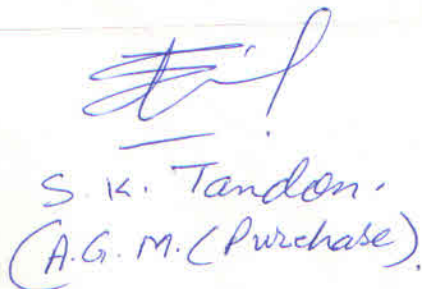 S. K. Tandon.
(A.G.M. (Purchase).